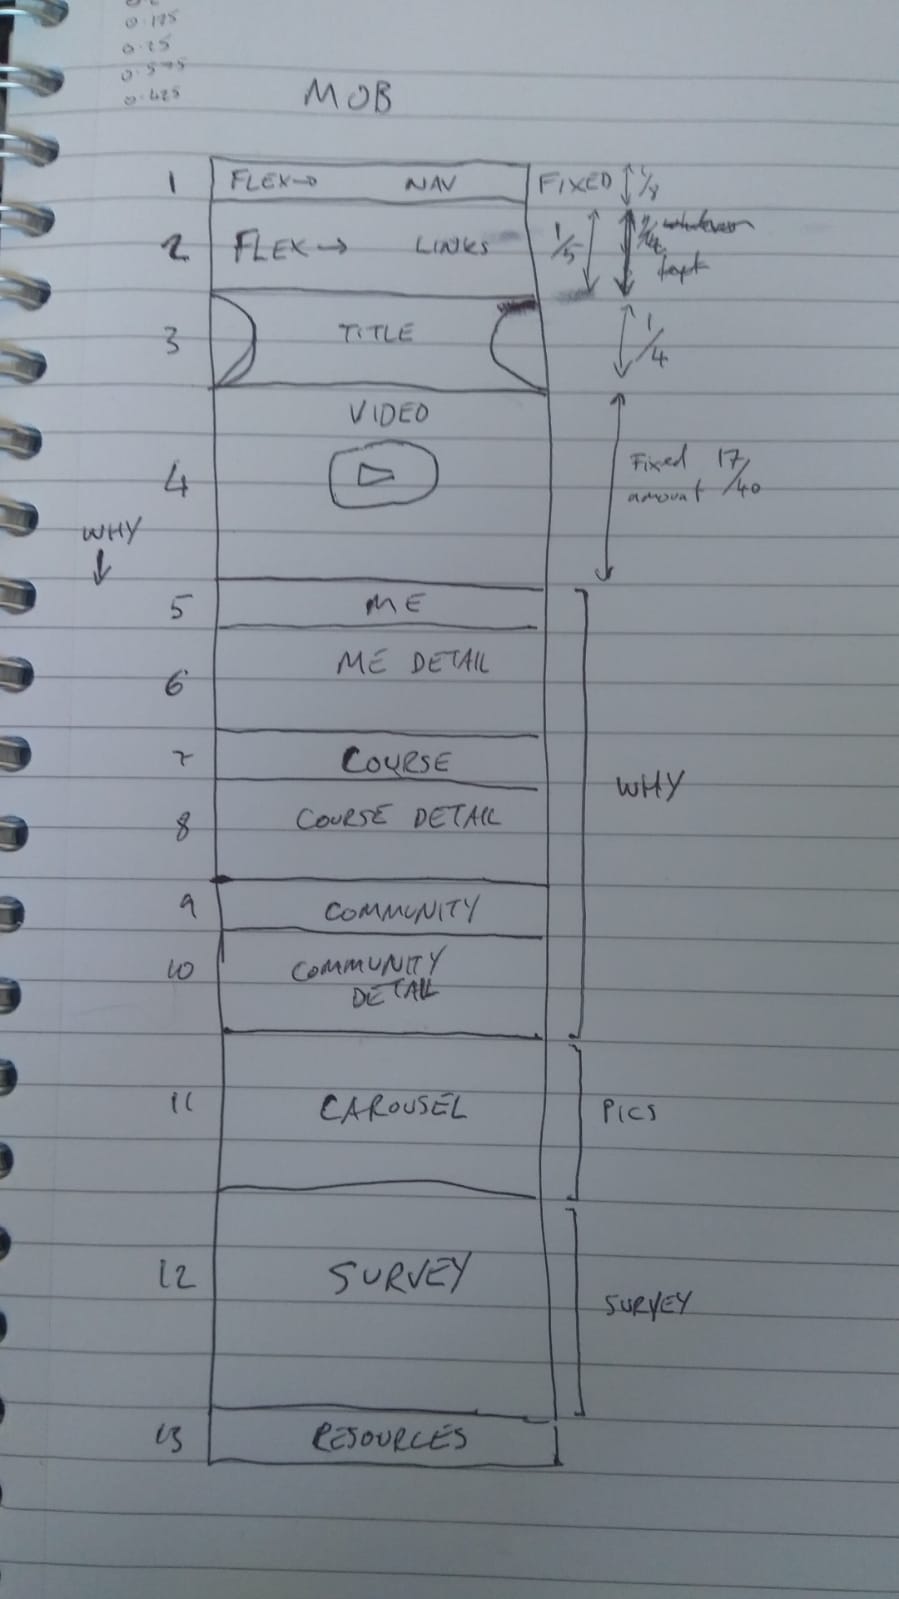 0.125
0.25
0.575
0.425
MOB
1 FLEX→ NAV FIXED 1/8
2 FLEX → LINKS 1/5
3 TITLE 1/4
VIDEO
4 Fixed 17/40
amount
WHY
↓
5 ME
6 ME DETAIL
7 COURSE
WHY
8 COURSE DETAIL
9 COMMUNITY
10 COMMUNITY
DETAIL
11 CAROUSEL PICS
12 SURVEY
SURVEY
13 RESOURCES